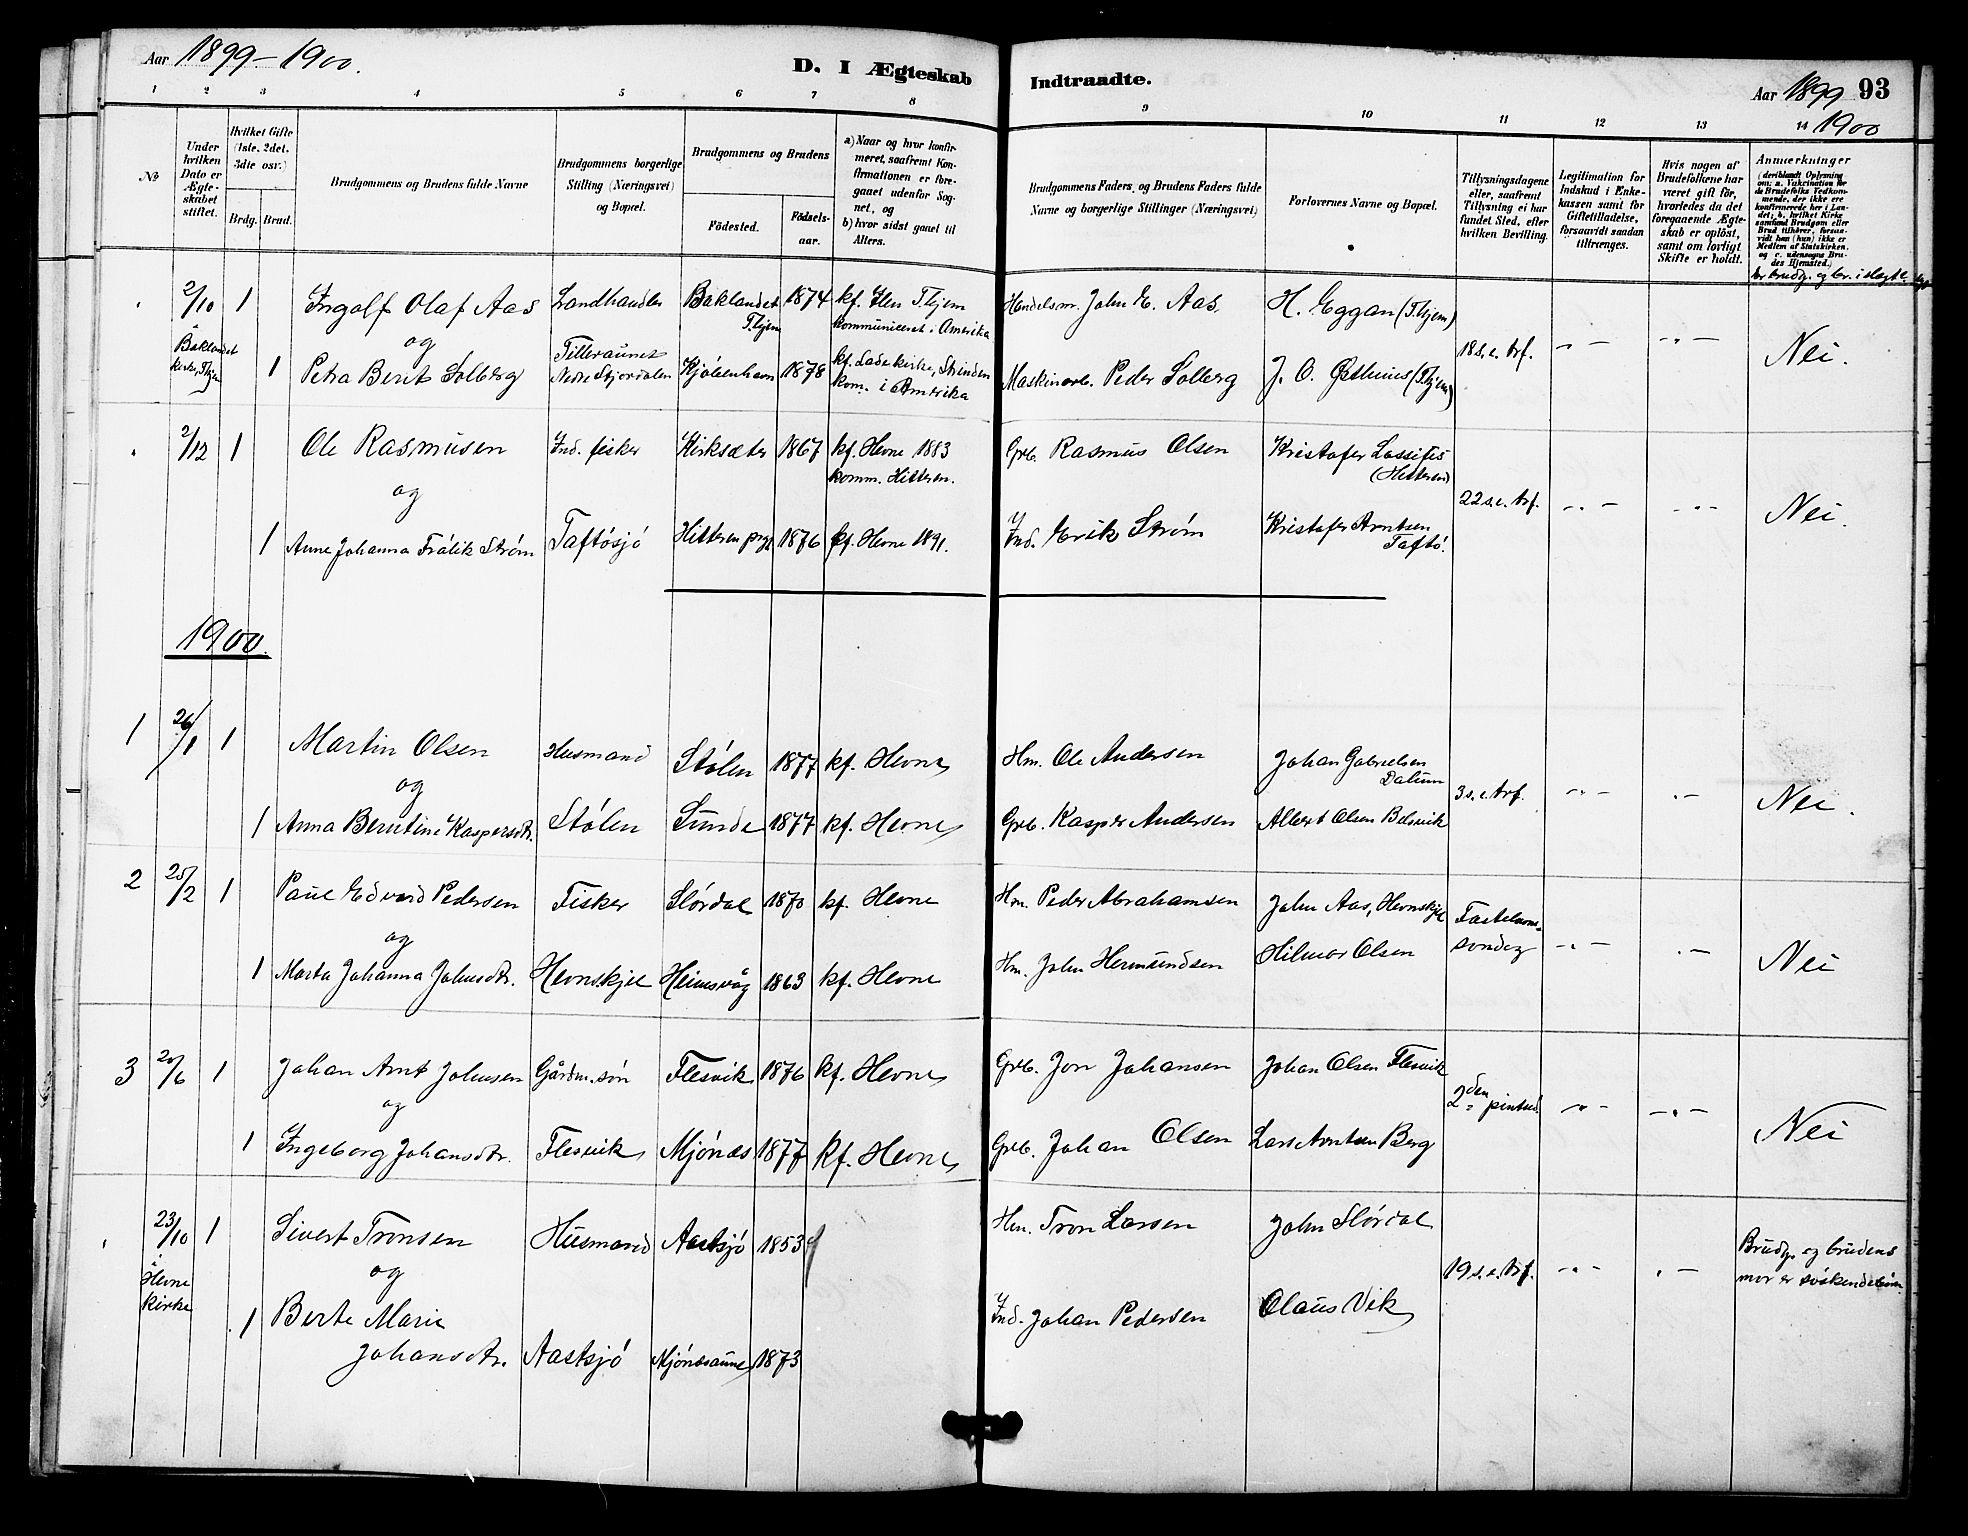 Aar 1899-1900.
D. I Ægteskab Indtraadte.
Aar 1899 93
1900
1 2 3 4 5 6 7 8 9 10 11 12 13 14
No
Under hvilken Dato er Ægteskabet stiftet.
Hvilket Gifte (1ste, 2det, 3die osv.)
Brdg. Brud.
Brudgommens og Brudens fulde Navne
Brudgommens borgerlige Stilling (Næringsvei) og Bopæl.
Brudgommens og Brudens
Fødested. Fødselsaar.
a) Naar og hvor konfirmeret, saafremt Konfirmationen er foregaaet udenfor Sognet, og
b) hvor sidst gaaet til Alters.
Brudgommens Faders og Brudens Faders fulde Navne og borgerlige Stillinger (Næringsvei)
Forlovernes Navne og Bopæl.
Tillysningsdagene eller, saafremt Tillysning ei har fundet Sted, efter hvilken Bevilling.
Legitimation for Indskud i Enkekassen samt for Giftetilladelse, forsaavidt saadan tiltrænges.
Hvis nogen af Brudefolkene har været gift før, hvorledes da det foregaaende Ægteskab er opløst, samt om lovligt Skifte er holdt.
Anmærkninger (deriblandt Oplysning om: a. Vakcination for de Brudefolks Vedkommende, der ikke ere konfirmerede her i Landet; b. hvilket Kirkesamfund Brudgom eller Brud tilhører, forsaavidt han (hun) ikke er Medlem af Statskirken, og c. udensogns Brudes Hjemsted.)
Er brudg. og br. i slægt
2/10 1 Ingolf Olaf Aas Landhandler Baklandet T.hjem 1874 kf. Ilen T.hjem kommuniceret i Amerika Handelsm. John E. Aas. H. Eggan (T.hjem)
å Baklandet kirke, T.hjem
og
18 s. e. trf. Nei.
1 Petra Berit Solberg Tilleraunet Nedre Stjørdalen Kjöbenhavn 1878 kf. Lade kirke, Strinden kom. i Amerika Maskinarb. Peder Solberg J. O. Østhuus (T.hjem)
2/12 1 Ole Rasmusen Ind. fisker Kirksæter 1867 kf. Hevne 1883 komm. Hitteren. Grb. Rasmus Olsen Kristofer (Hitteren)
og
22 s. e. trf. Nei.
1 Anne Johanna Frölik Strøm Taftösjö Hitteren prgj 1876 kf. Hevne 1891. Ind. Erik Strøm Kristofer Arntsen Taftö.
1900.
1 26/1 1 Martin Olsen Husmand Stölen 1877 kf. Hevne Hm. Ole Andersen Johan Gabrielsen Dalum
og
3 s. e. trf. Nei.
1 Anna Berntine Kaspersdtr. Stölen Sunde 1877 kf. Hevne Grb. Kasper Andersen Albert Olsen Belsvik
2 25/2 1 Paul Edvard Pedersen Fisker Slördal 1870 kf. Hevne Hm. Peder Abrahamsen John Aas, Hevnskjel
og
Fastelavns-söndag Nei
1 Marta Johanna Johnsdtr. Hevnskjel Heimsvåg 1863 kf. Hevne Hm. John Hermundsen Hilmar Olsen
3 20/6 1 Johan Arnt Johnsen Gårdm. sön Flesvik 1876 kf. Hevne Grb. Jon Johansen Johan Olsen Flesvik
og
2den pintsd. Nei
1 Ingeborg Johansdtr. Flesvik Mjönes 1877 kf. Hevne Grb. Johan Olsen Lars Arntsen Berg
23/10 1 Sivert Tronsen Husmand Aastsjö 1853 Hm. Tron Larsen John Slördal
å Hevne kirke
og
19 s. e. trf. Brudg. og brudens mor er söskendebörn
1 Berte Marie Johansdtr. Aastsjö Mjönesaune 1873 Ind. Johan Pedersen Olaus Vik